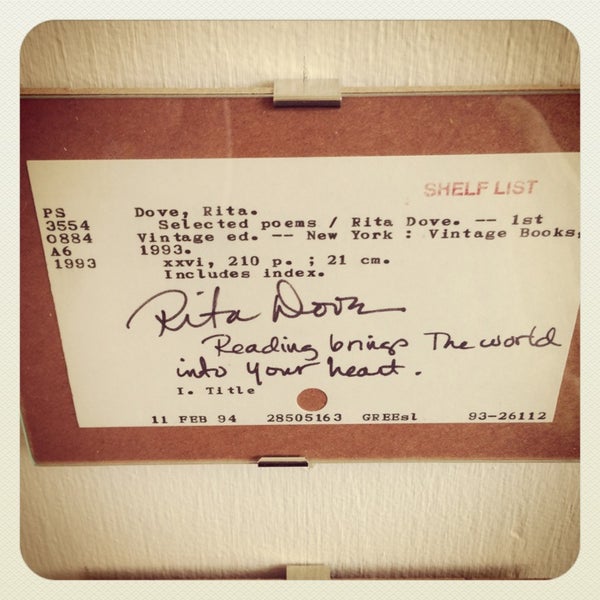 SHELF LIST
PS Dove, Rita.
3554 Selected poems / Rita Dove. -- 1st
0884 Vintage ed. -- New York : Vintage Books,
A6 1993.
1993 xxvi, 210 p. ; 21 cm.
Includes index.
Rita Dove
Reading brings The world
into your heart.
I. Title
11 FEB 94 28505163 GREEsl 93-26112